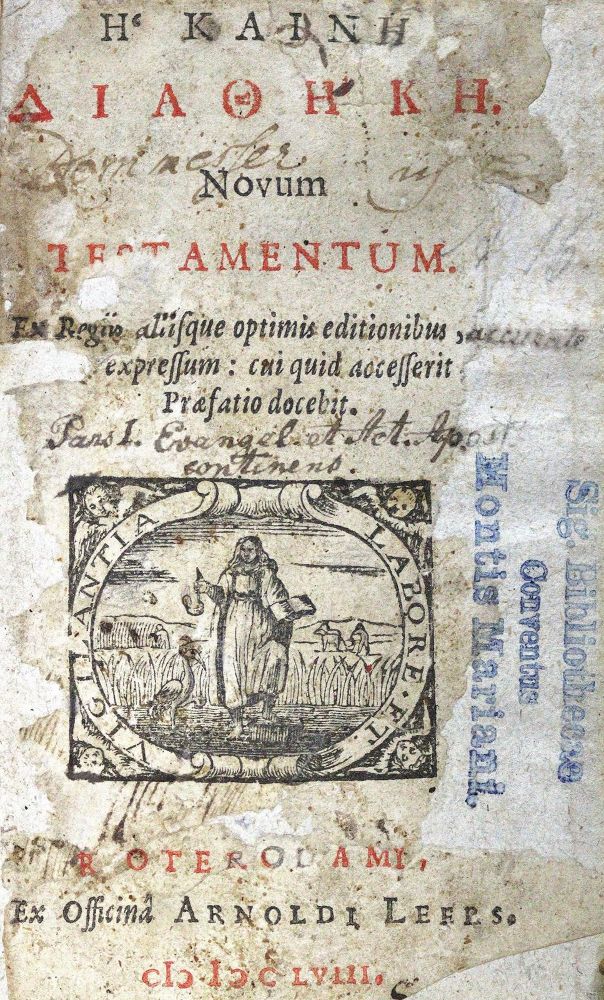 Ἡ ΚΑΙΝΗ
ΔΙΑΘΗΚΗ.
Novum
TESTAMENTUM.
Ex Regiis aliisque optimis editionibus, accurate
expressum: cui quid accesserit
Præfatio docebit.
Pars I. Evangel. et Act. Apost.
continens.
VIGILANTIA
LABORE. ET
Sig. Bibliothecae
Conventus
Montis Mariani.
ROTERODAMI,
Ex Officinâ ARNOLDI LEERS.
cIɔ Iɔc LVIII.